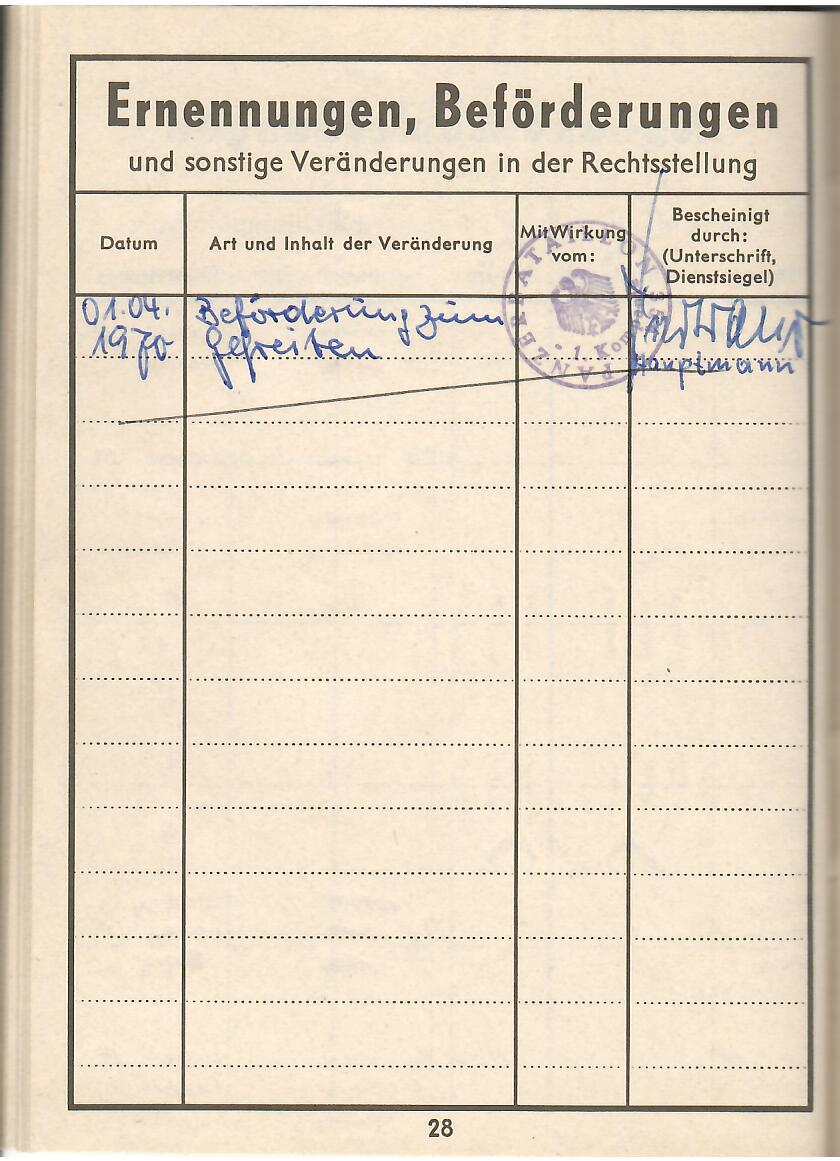 Ernennungen, Beförderungen
und sonstige Veränderungen in der Rechtsstellung
Datum
Art und Inhalt der Veränderung
Mit Wirkung
vom:
Bescheinigt
durch:
(Unterschrift,
Dienstsiegel)
01.04.
1970
Beförderung zum
Gefreiten
PANZERBATAILLON
1. Komp
Hauptmann
28